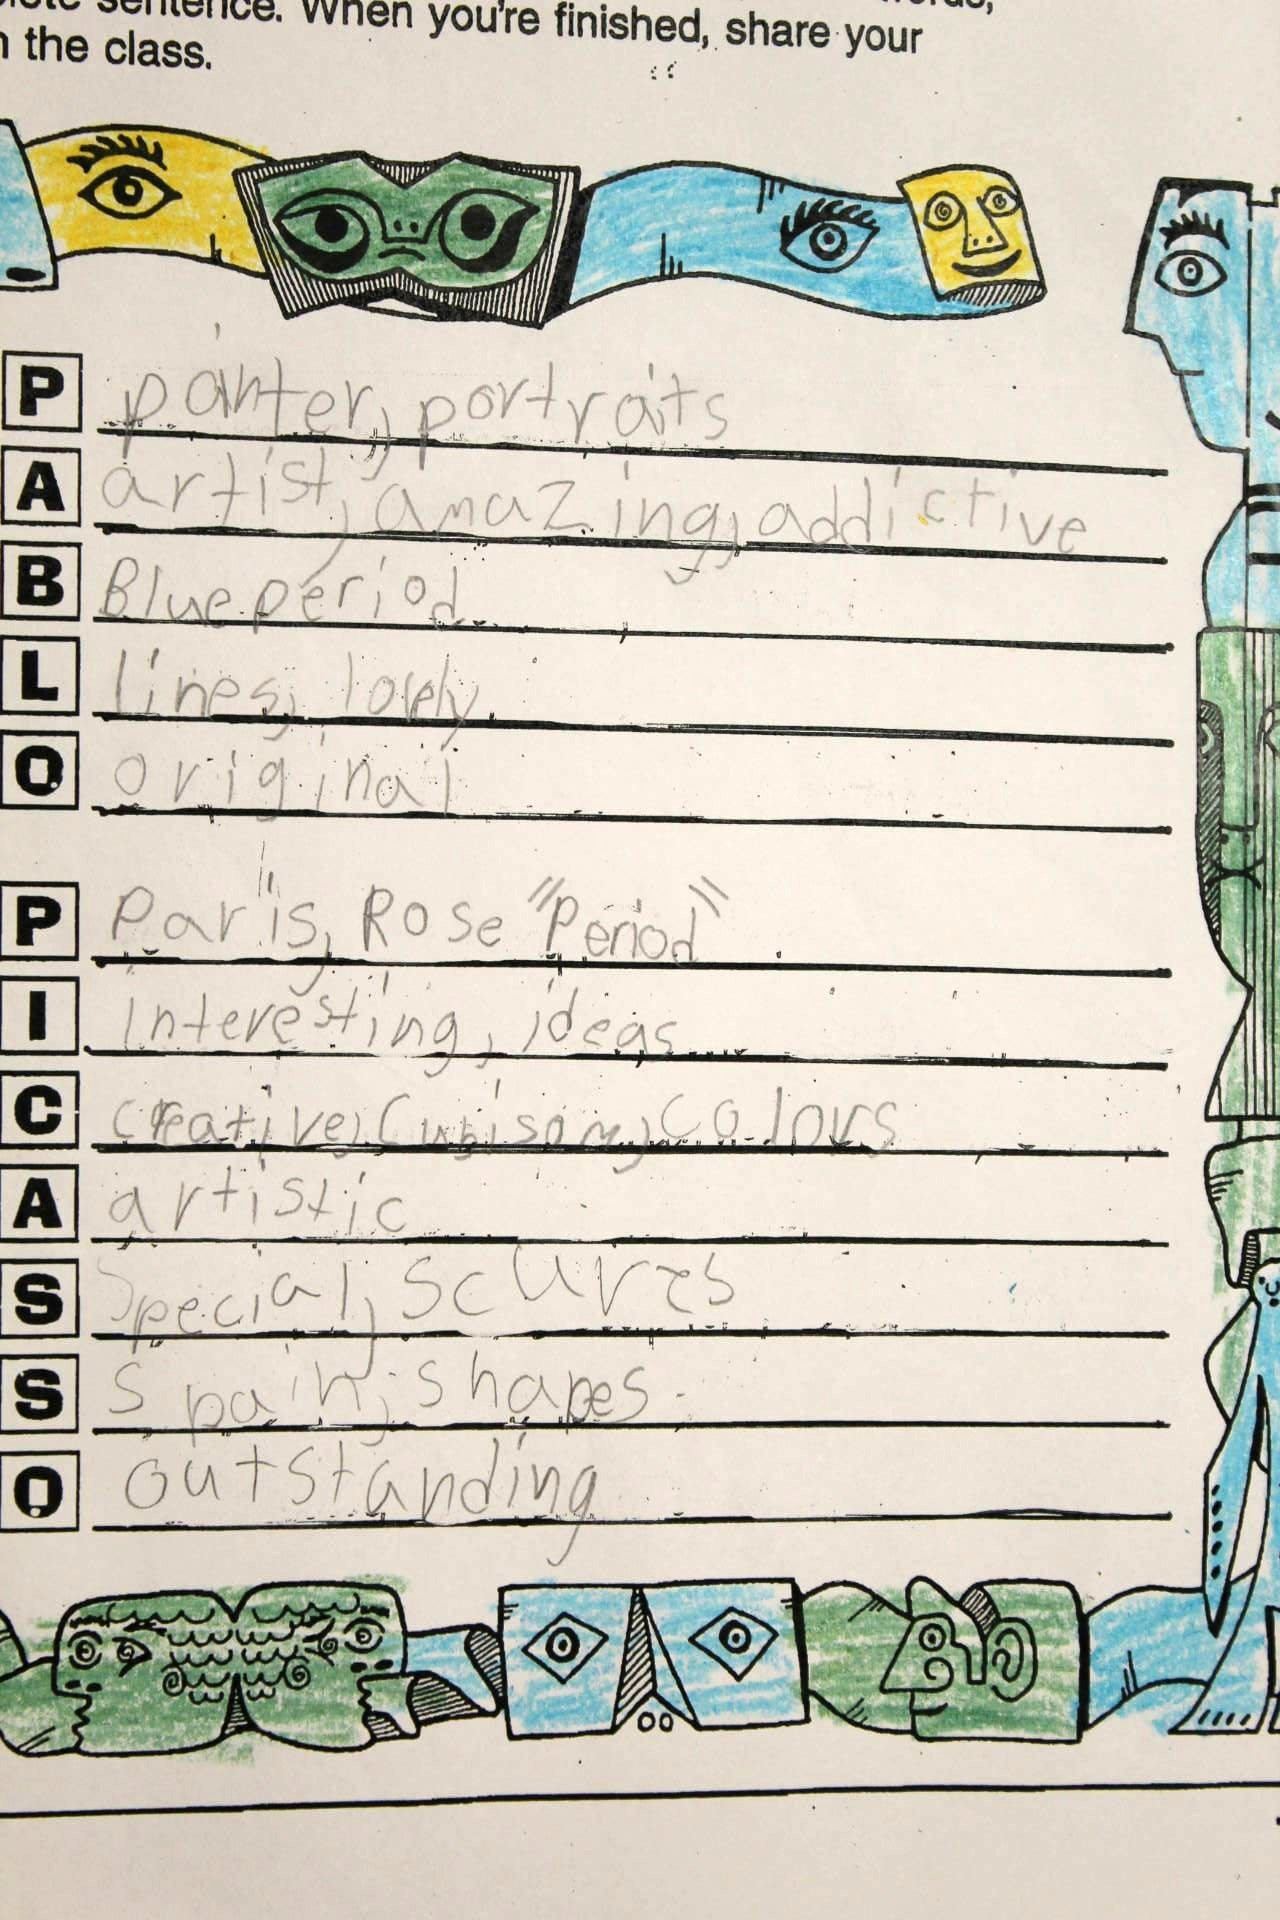 sentence. When you're finished, share your
the class.
P painter, portraits
A artist, amazing, addictive
B Blue period
L lines, lovely
O original
P Paris, Rose "Period"
I interesting, ideas
C creative, Cubisom, colors
A artistic
S Special, scurves
S Spain, shapes
O outstanding